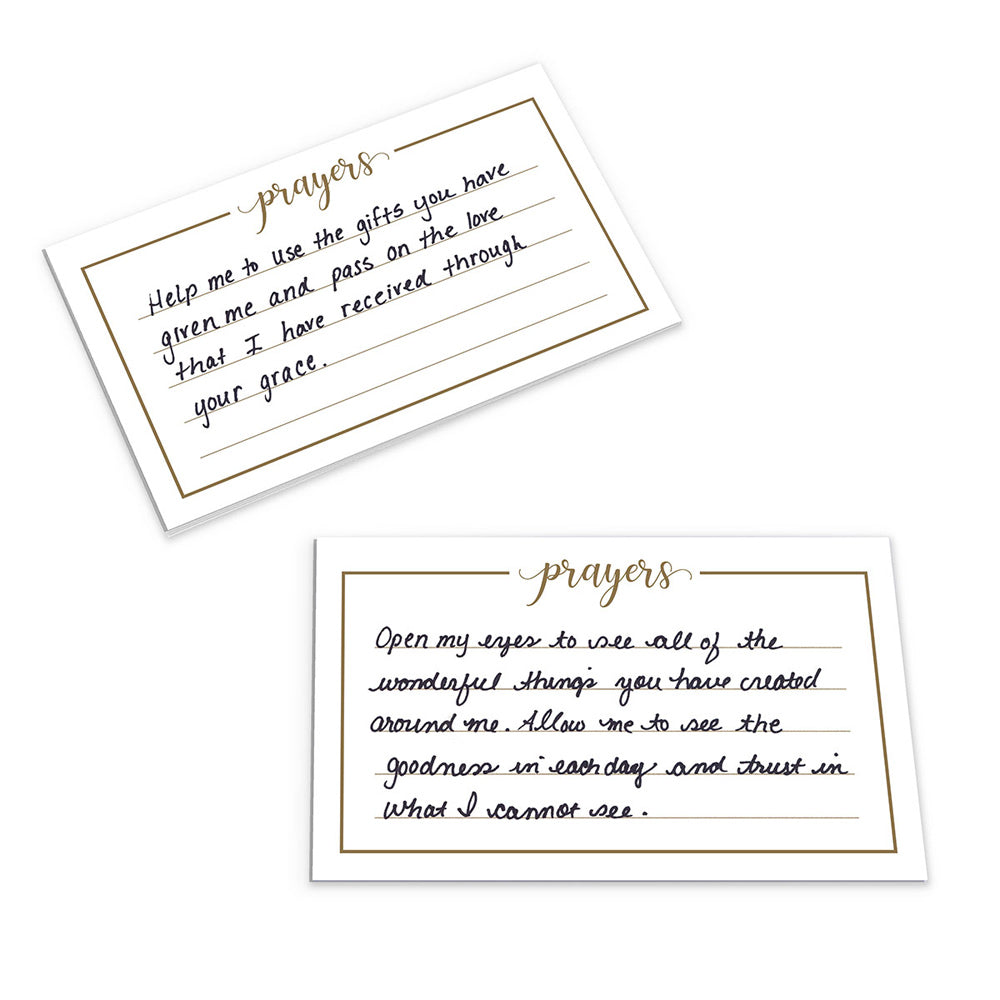 prayers
Help me to use the gifts you have
given me and pass on the love
that I have received through
your grace.
prayers
Open my eyes to see all of the
wonderful things you have created
around me. Allow me to see the
goodness in each day and trust in
what I cannot see.